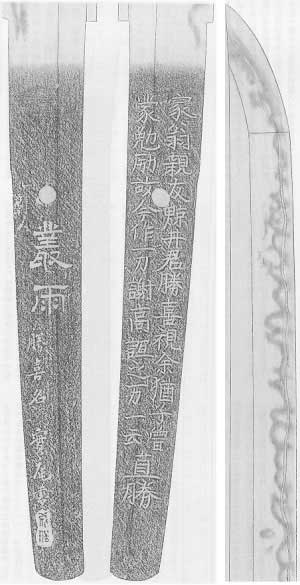 家翁親友鯨井君勝喜視余猶子嘗
蒙勉励故今作一刀謝高誼之万一云 直勝
叢雨
勝喜名